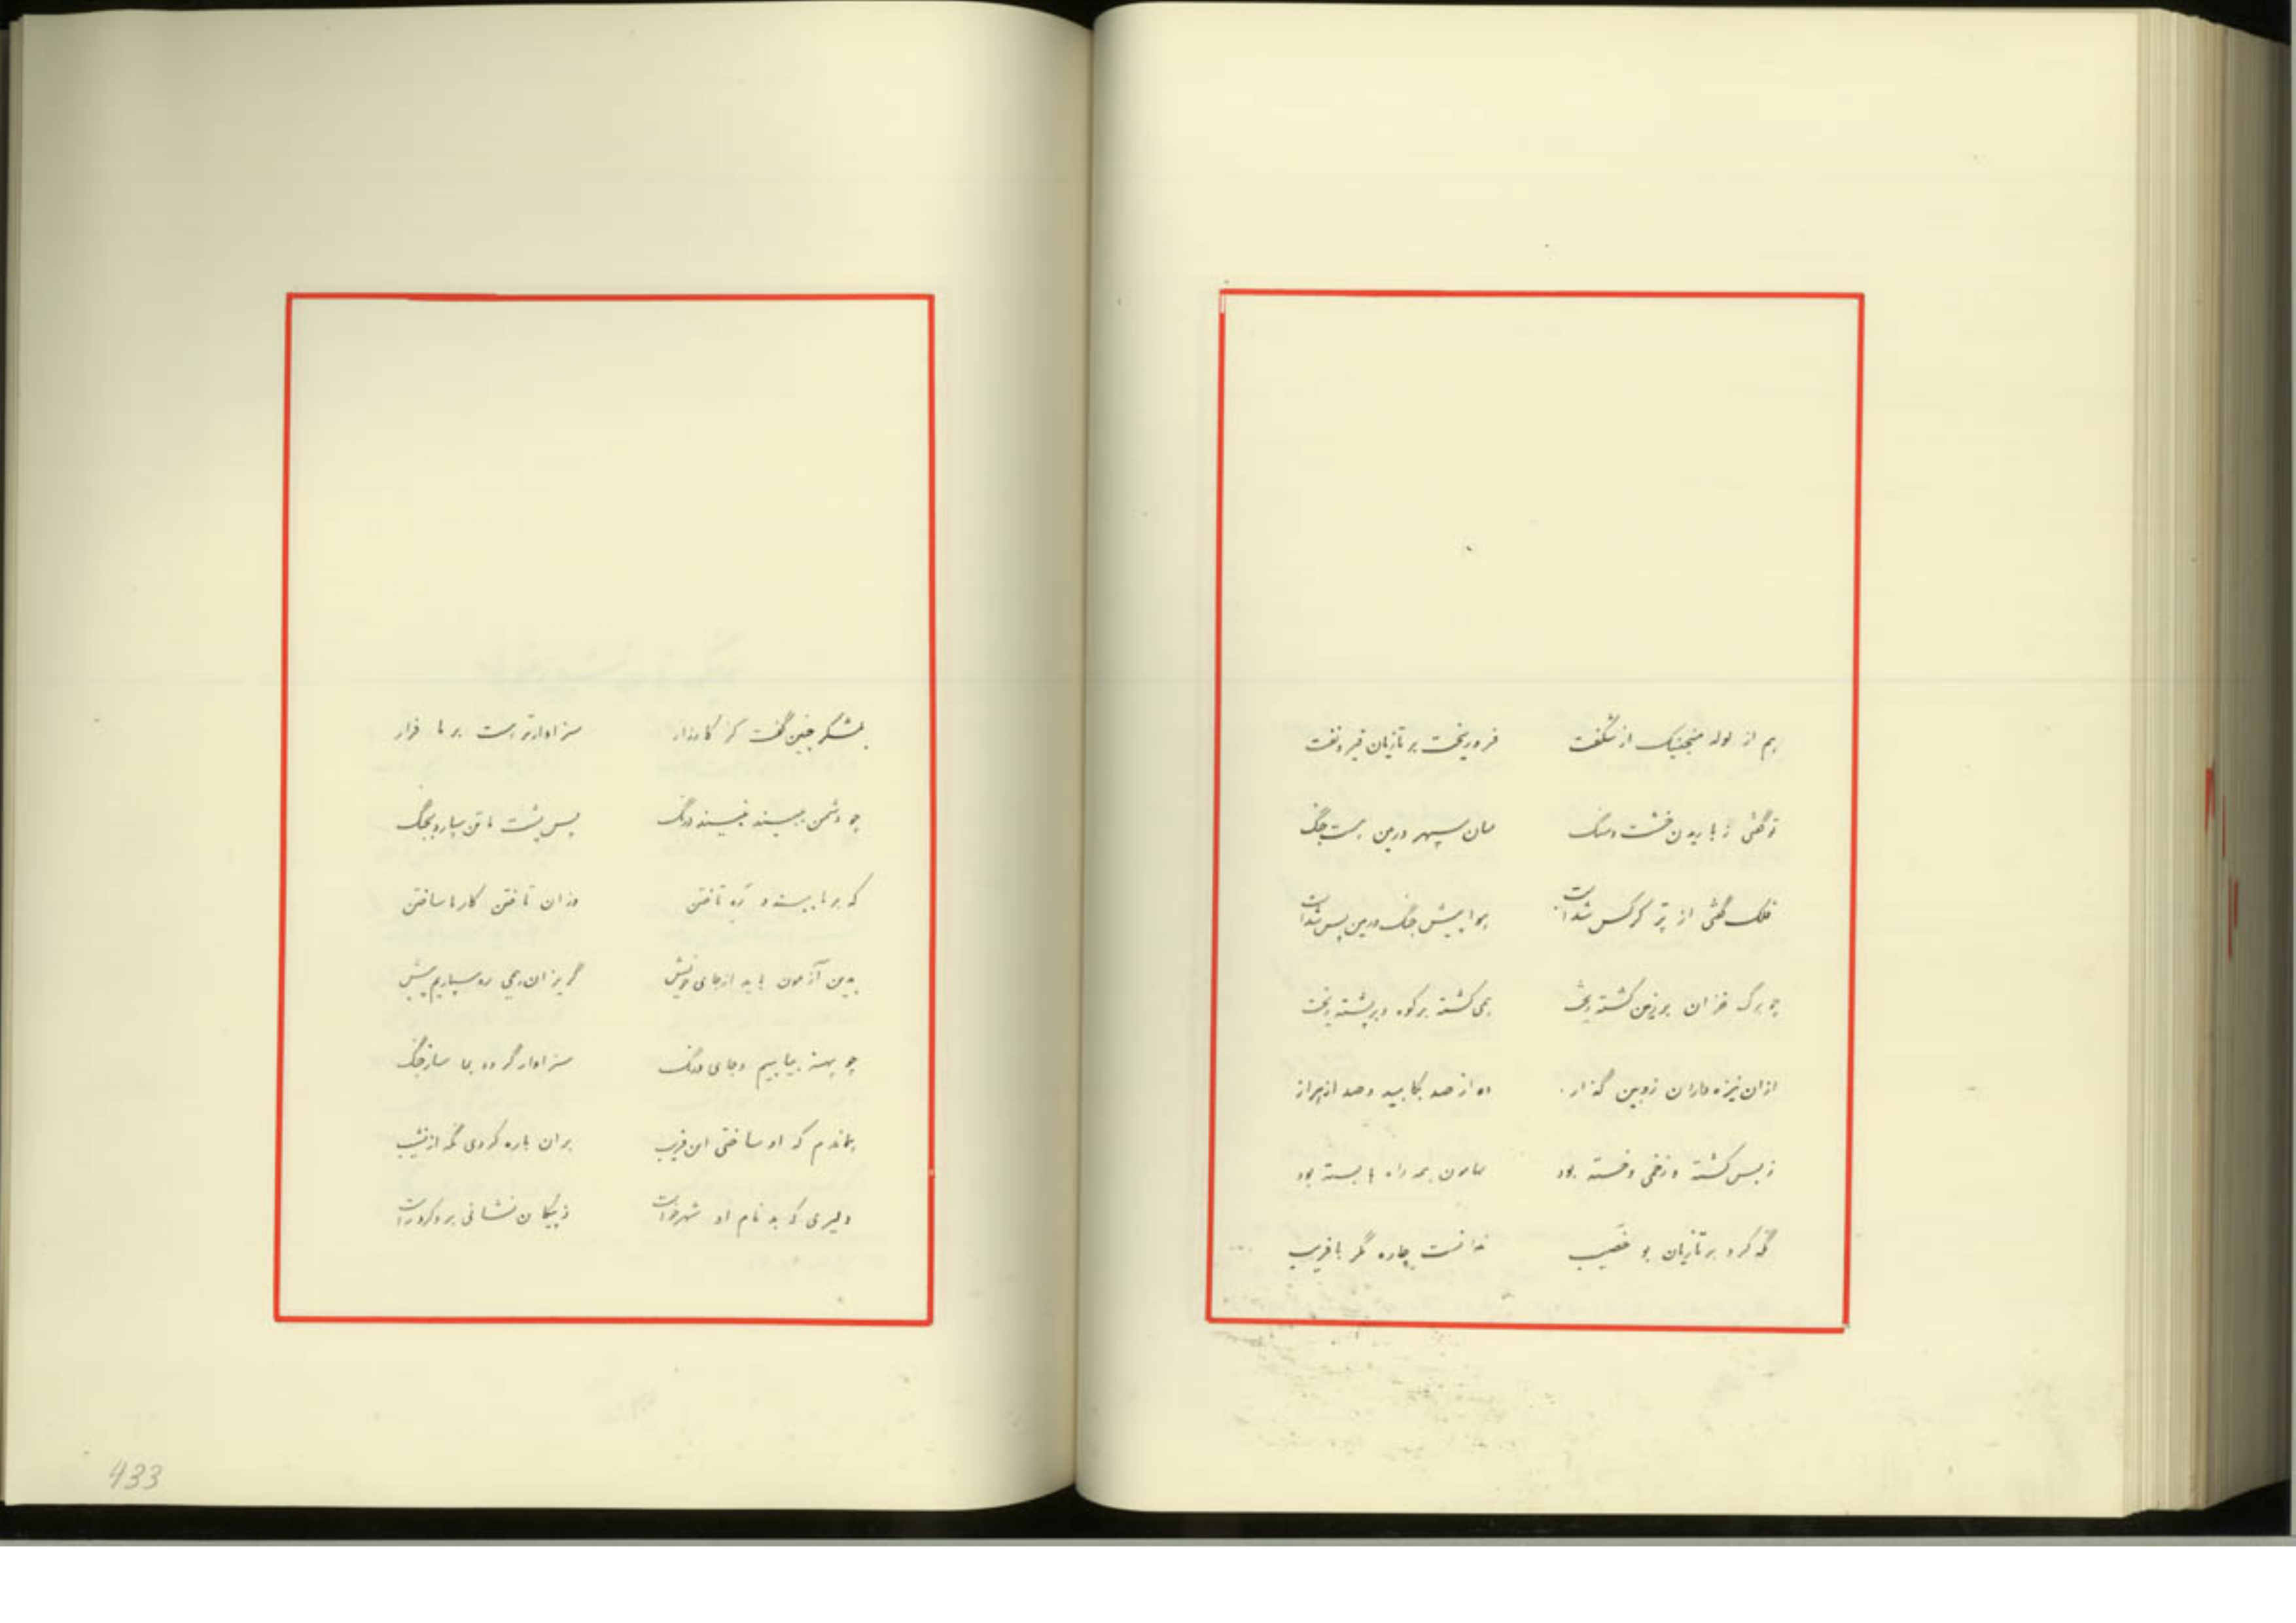 هم از لوله منجنیک از شگفت    فرو ریخت بر تازیان قیر و نفت
تو گفتی ز باریدن خشت و سنگ    میان سپهر و زمین است جنگ
فلک گفتی از پر کرکس شدست    هوا پیش جنگ زمین پس شدست
چو برگ خزان بر زمین کشته ریخت    همی کشته بر کوه و بر پشته ریخت
ازان نیزه داران زوبین گذار    ده از صد بکاهید و صد از هزار
ز بس کشته و زخمی و خسته بود    بهامون همه راه ها بسته بود
نگه کرد بر تازیان بو خصیب    ندانست چاره مگر با فریب
بلشکر چنین گفت کز کارزار    سزاوارتر هست بر ما فرار
چو دشمن ببیند نبیند درنگ    پس پشت ما تن سپارد بجنگ
که بر ما ببیند و ره تافتن    وزان تافتن کارها ساختن
بدین آزمون باید از جای خویش    گریزان همی ره سپاریم پیش
چو پهنه بیابیم و جای درنگ    سزاوار گردد بما ساز جنگ
بماندم که او ساختی این فریب    بران باره کردی نگه از نشیب
دلیری که بد نام او شهرخواست    ز پیکان نشانی برو کرد راست
433